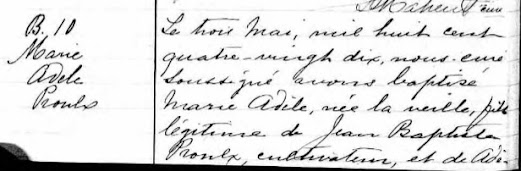 B. 10
Marie
Adèle
Proulx
Le trois Mai, mil huit cent
quatre-vingt dix, nous curé
soussigné avons baptisé
Marie Adèle, née la veille, fille
légitime de Jean Baptiste
Proulx, cultivateur, et de Adè